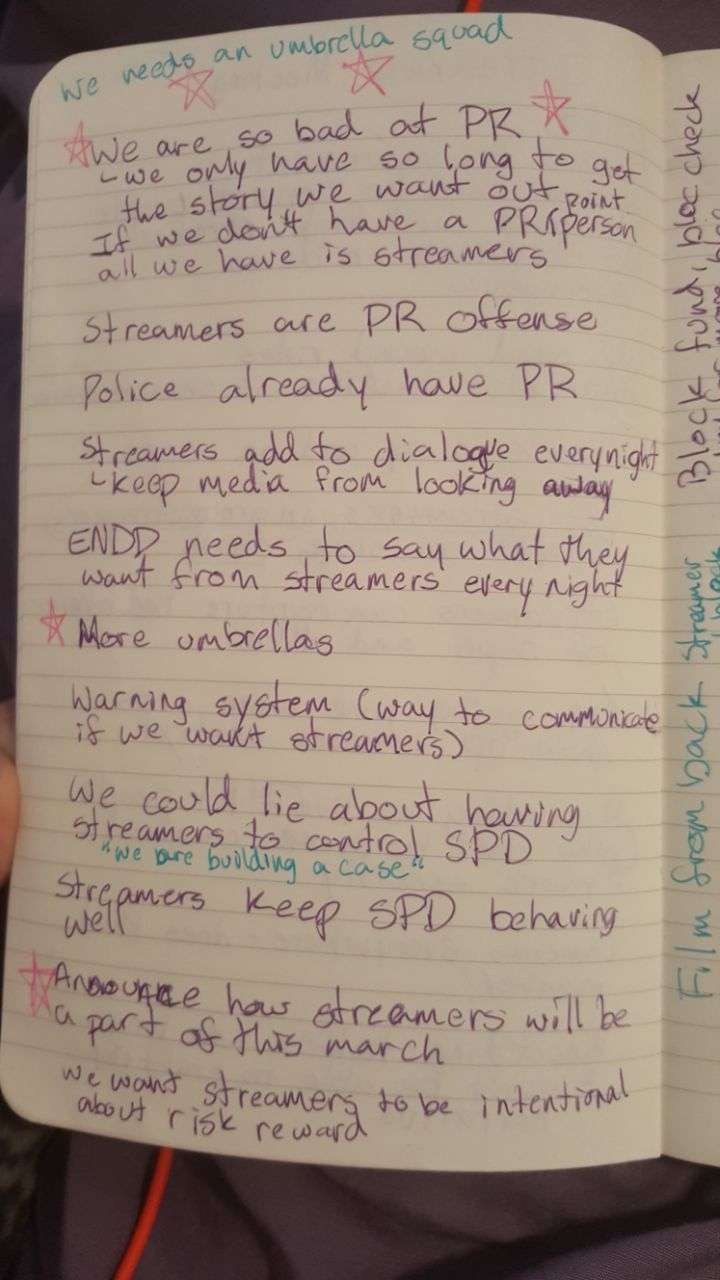 We needs an umbrella squad
We are so bad at PR
we only have so long to get
the story we want out
point
If we don't have a PR person
all we have is streamers
Streamers are PR offense
Police already have PR
Streamers add to dialogue everynight
keep media from looking away
ENDD needs to say what they
want from streamers every night
More umbrellas
Warning system (way to communicate
if we want streamers)
We could lie about having
streamers to control SPD
"we are building a case"
Streamers keep SPD behaving
well
Announce how streamers will be
a part of this march
we want streamers to be intentional
about risk reward
Block fund, bloc check
Film from back streamer
block